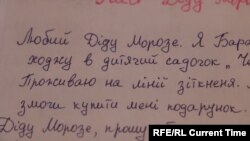 Діду
Любий Діду Морозе. Я Бара
ходжу в дитячий садочок „
Проживаю на лінії зіткненя.
змоги купити мені подарунок
Діду Морозе, прошу
© RFE/RL Current Time